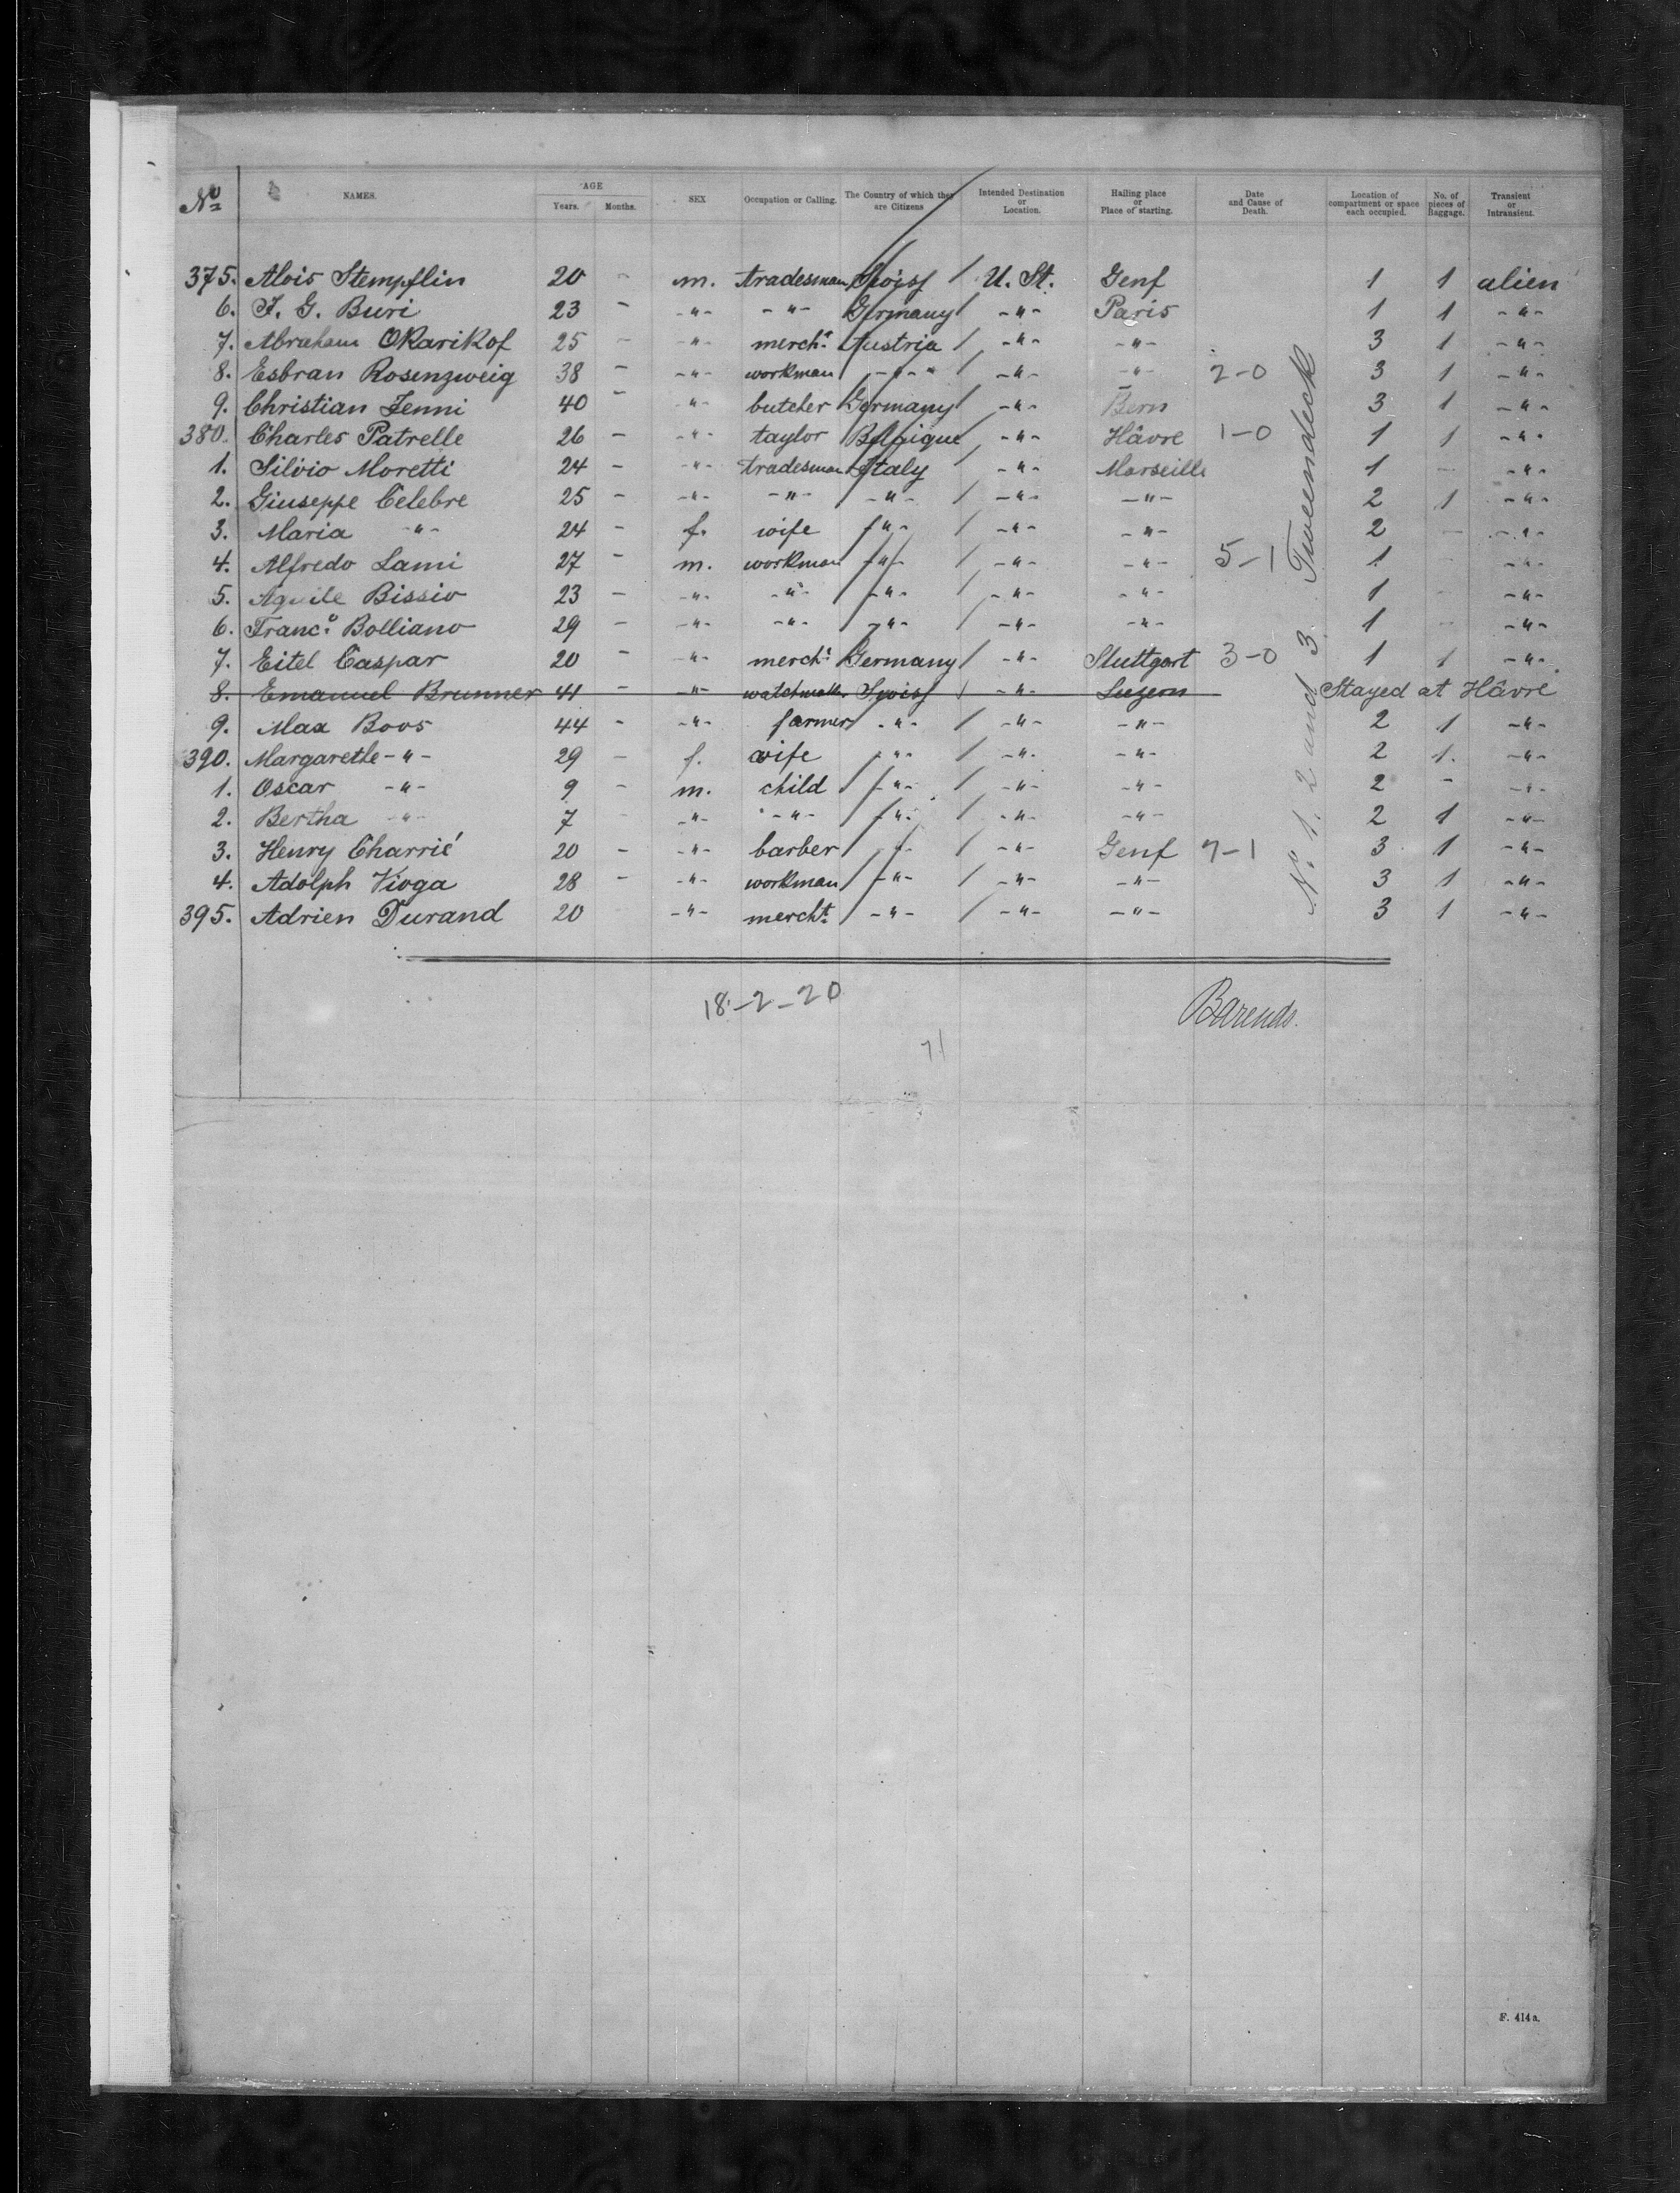 No NAMES. AGE Years. Months. SEX Occupation or Calling. The Country of which they are Citizens Intended Destination or Location. Hailing place or Place of starting. Date and Cause of Death. Location of compartment or space each occupied. No. of pieces of Baggage. Transient or Intransient.
375. Alois Stempflin 20 - m. tradesman Swiss / U. St. Genf 1 1 alien
6. F. G. Buri 23 - -"- -"- Germany / -"- Paris 1 1 -"-
7. Abraham OKarikof 25 - -"- mercht. Austria / -"- -"- 3 1 -"-
8. Esbran Rosenzweig 38 - -"- workman / -"- / -"- -"- 2-0 3 1 -"-
9. Christian Jenni 40 - -"- butcher Germany / -"- Bern 3 1 -"-
380. Charles Patrelle 26 - -"- taylor Belgique / -"- Hâvre 1-0 1 1 -"-
1. Silvio Moretti 24 - -"- tradesman Italy / -"- Marseille 1 - -"-
2. Giuseppe Celebre 25 - -"- -"- / -"- / -"- -"- 2 1 -"-
3. Maria -"- 24 - f. wife / -"- / -"- -"- 2 - -"-
4. Alfredo Lami 27 - m. workman / -"- / -"- -"- 5-1 1 - -"-
5. Bissio 23 - -"- -"- / -"- / -"- -"- 1 - -"-
6. Franco. Bolliano 29 - -"- -"- / -"- / -"- -"- 1 - -"-
7. Eitel Caspar 20 - -"- mercht. Germany / -"- Stuttgart 3-0 1 1 -"-
8. Emanuel Brunner 41 - -"- watchmaker Swiss / -"- Luzern Stayed at Hâvre
9. Max Boos 44 - -"- farmer -"- / -"- -"- 2 1 -"-
390. Margarethe -"- 29 - f. wife / -"- / -"- -"- 2 1. -"-
1. Oscar -"- 9 - m. child / -"- / -"- -"- 2 - -"-
2. Bertha -"- 7 - -"- -"- / -"- / -"- -"- 2 1 -"-
3. Henry Charrié 20 - -"- barber / -"- / -"- Genf 7-1 3 1 -"-
4. Adolph Vioga 28 - -"- workman / -"- / -"- -"- 3 1 -"-
395. Adrien Durand 20 -"- mercht. / -"- / -"- -"- 3 1 -"-
No. 1. 2 and 3 Tweendeck
18-2-20
Barends.
71
F. 414a.